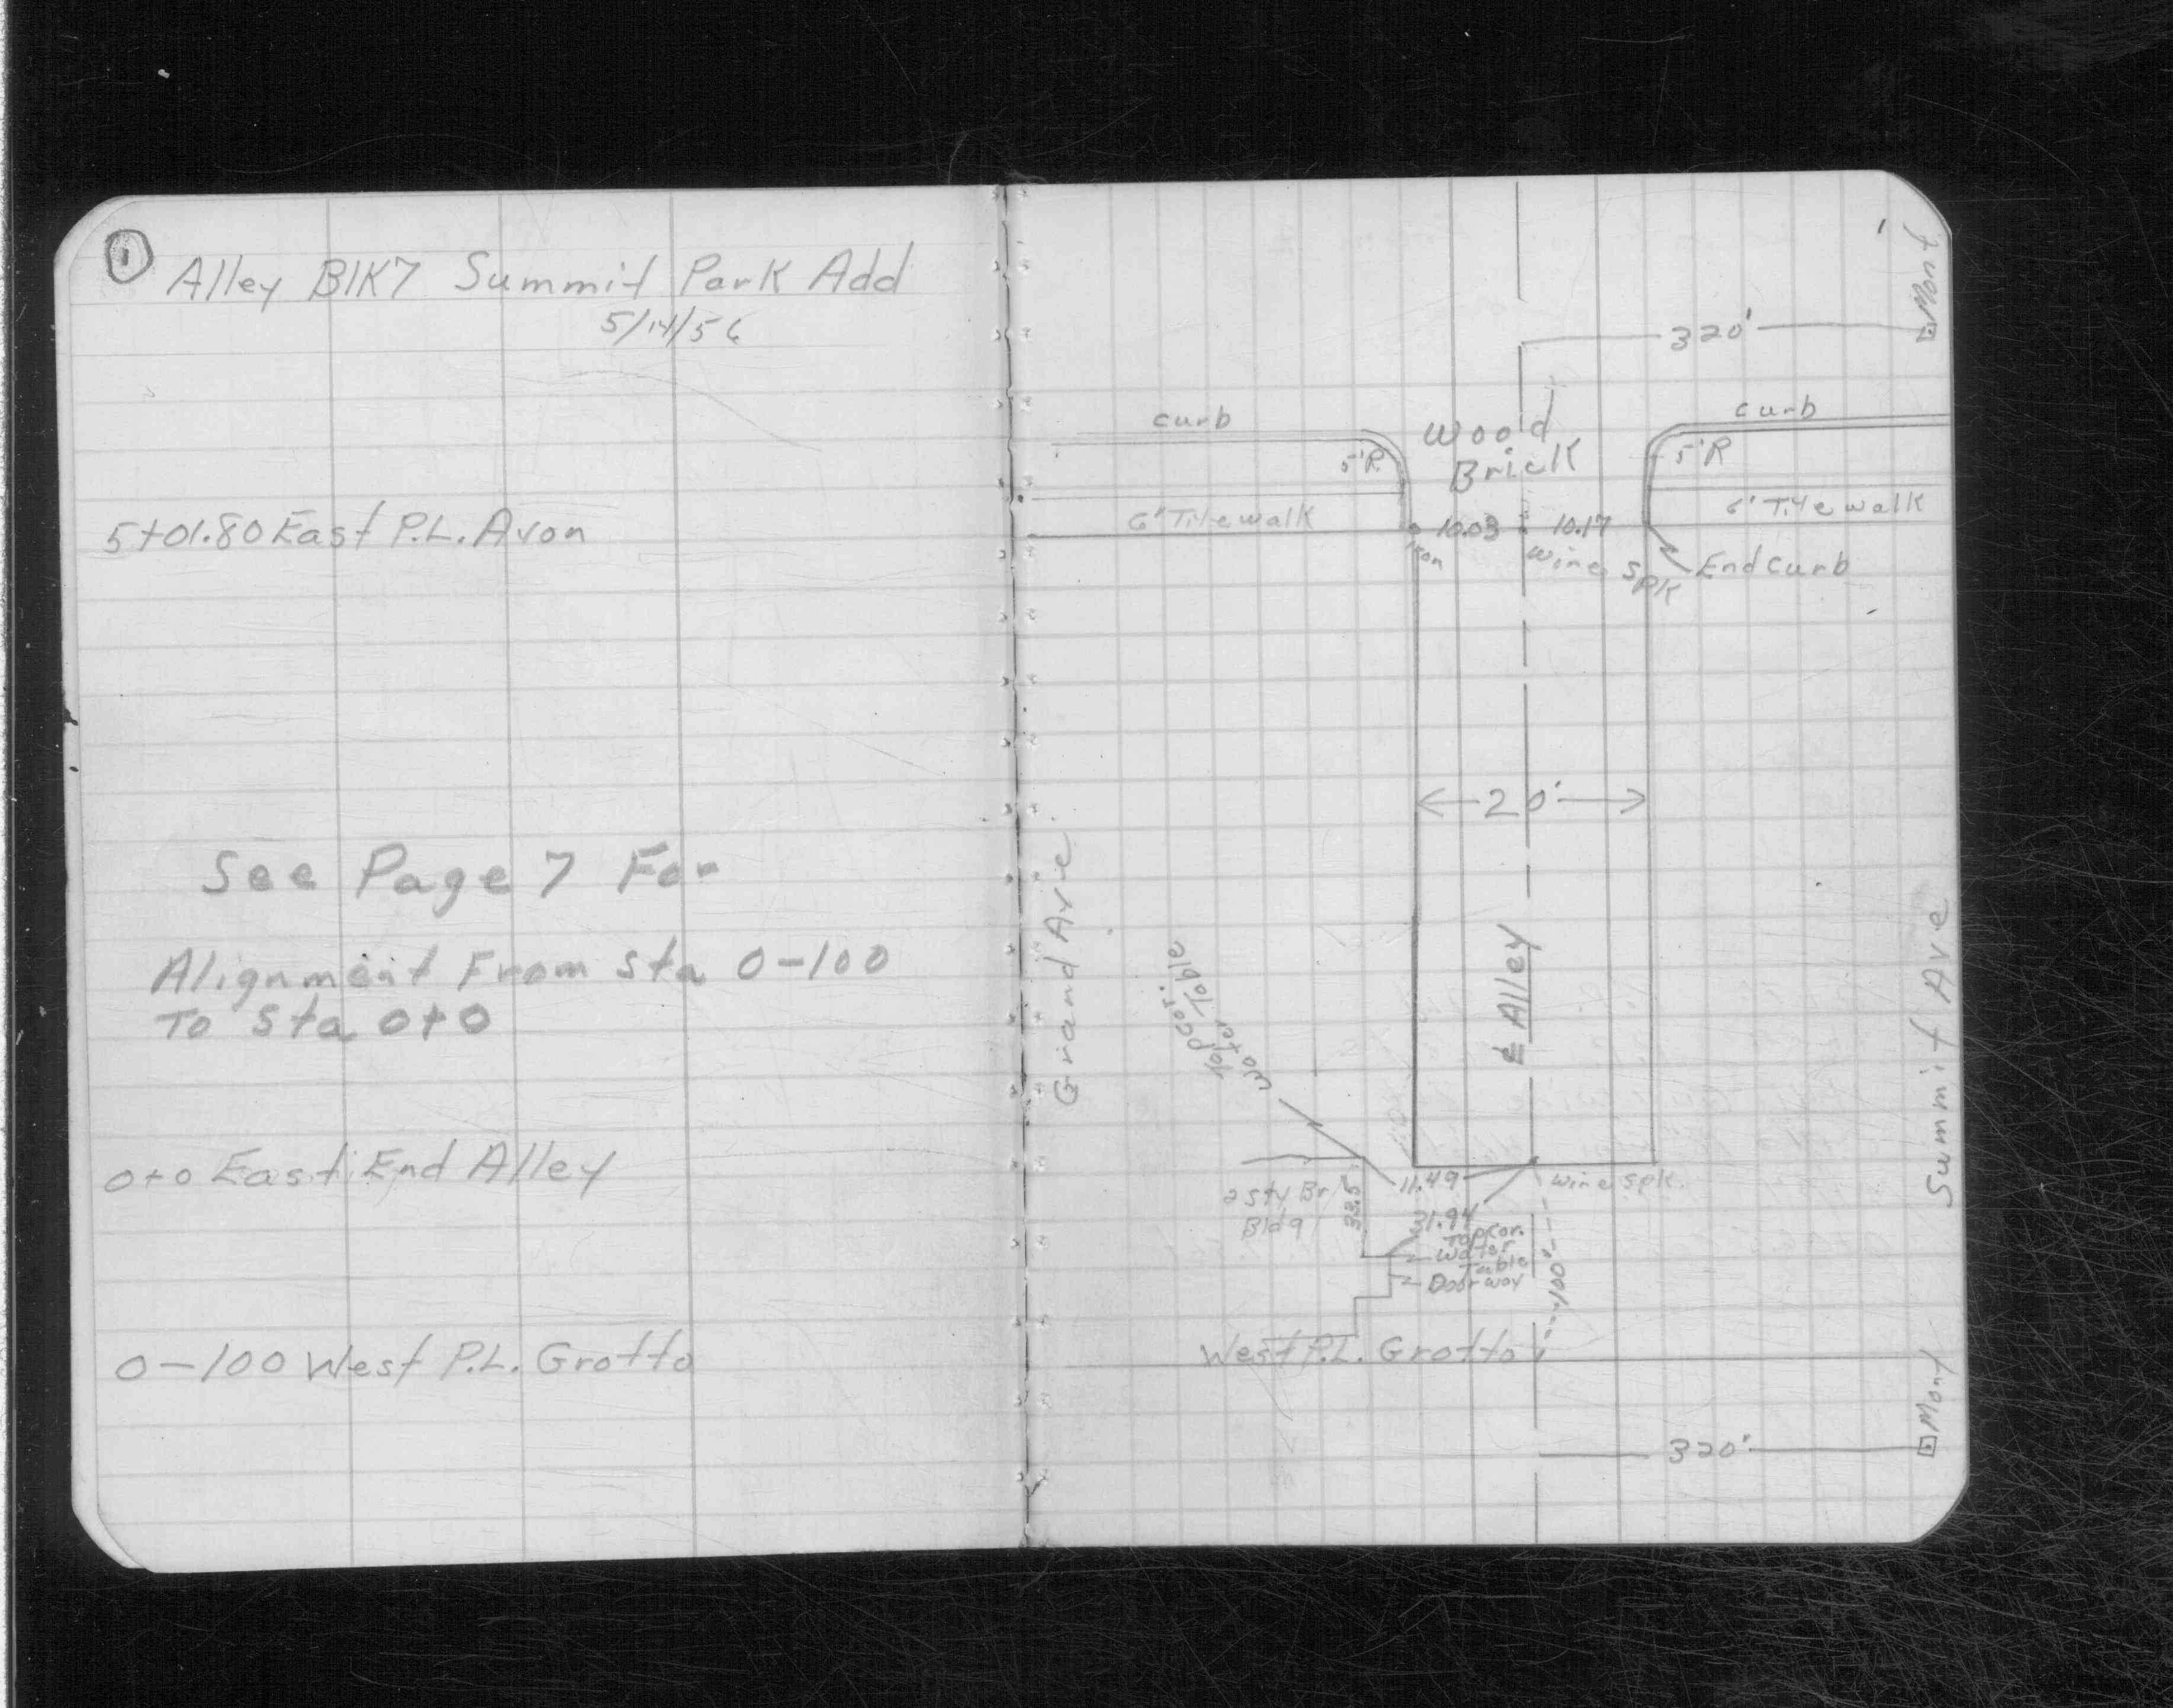 1
Alley Blk7 Summit Park Add
5/14/56
5+01.80 East P.L. Avon
See Page 7 For
Alignment From Sta 0-100
To Sta 0+0
0+0 East End Alley
0-100 West P.L. Grotto
Mont
320'
curb
curb
Wood
Brick
5'R
5'R
6' Tile walk
6' Tile walk
10.03
10.17
Iron
Wire Spk
End curb
20'
Grand Ave
℄ Alley
Summit Ave
Top cor.
Water Table
2 Sty Br
Bldg
33.5
11.49
Wire Spk.
31.94
Top cor.
Water
Table
Doorway
100'
West P.L. Grotto
320'
Mont